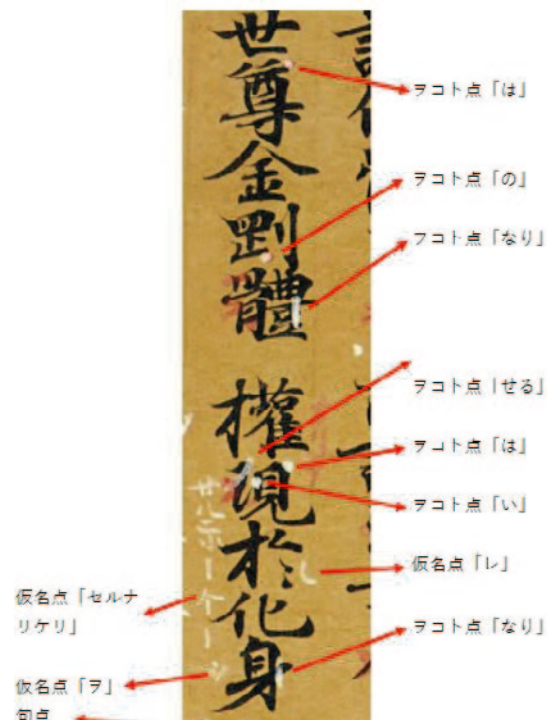 世尊金剛體
權現於化身
ヲコト点「は」
ヲコト点「の」
ヲコト点「なり」
ヲコト点「せる」
ヲコト点「は」
ヲコト点「い」
仮名点「レ」
ヲコト点「なり」
仮名点「セルナ
リケリ」
仮名点「ヲ」
句点